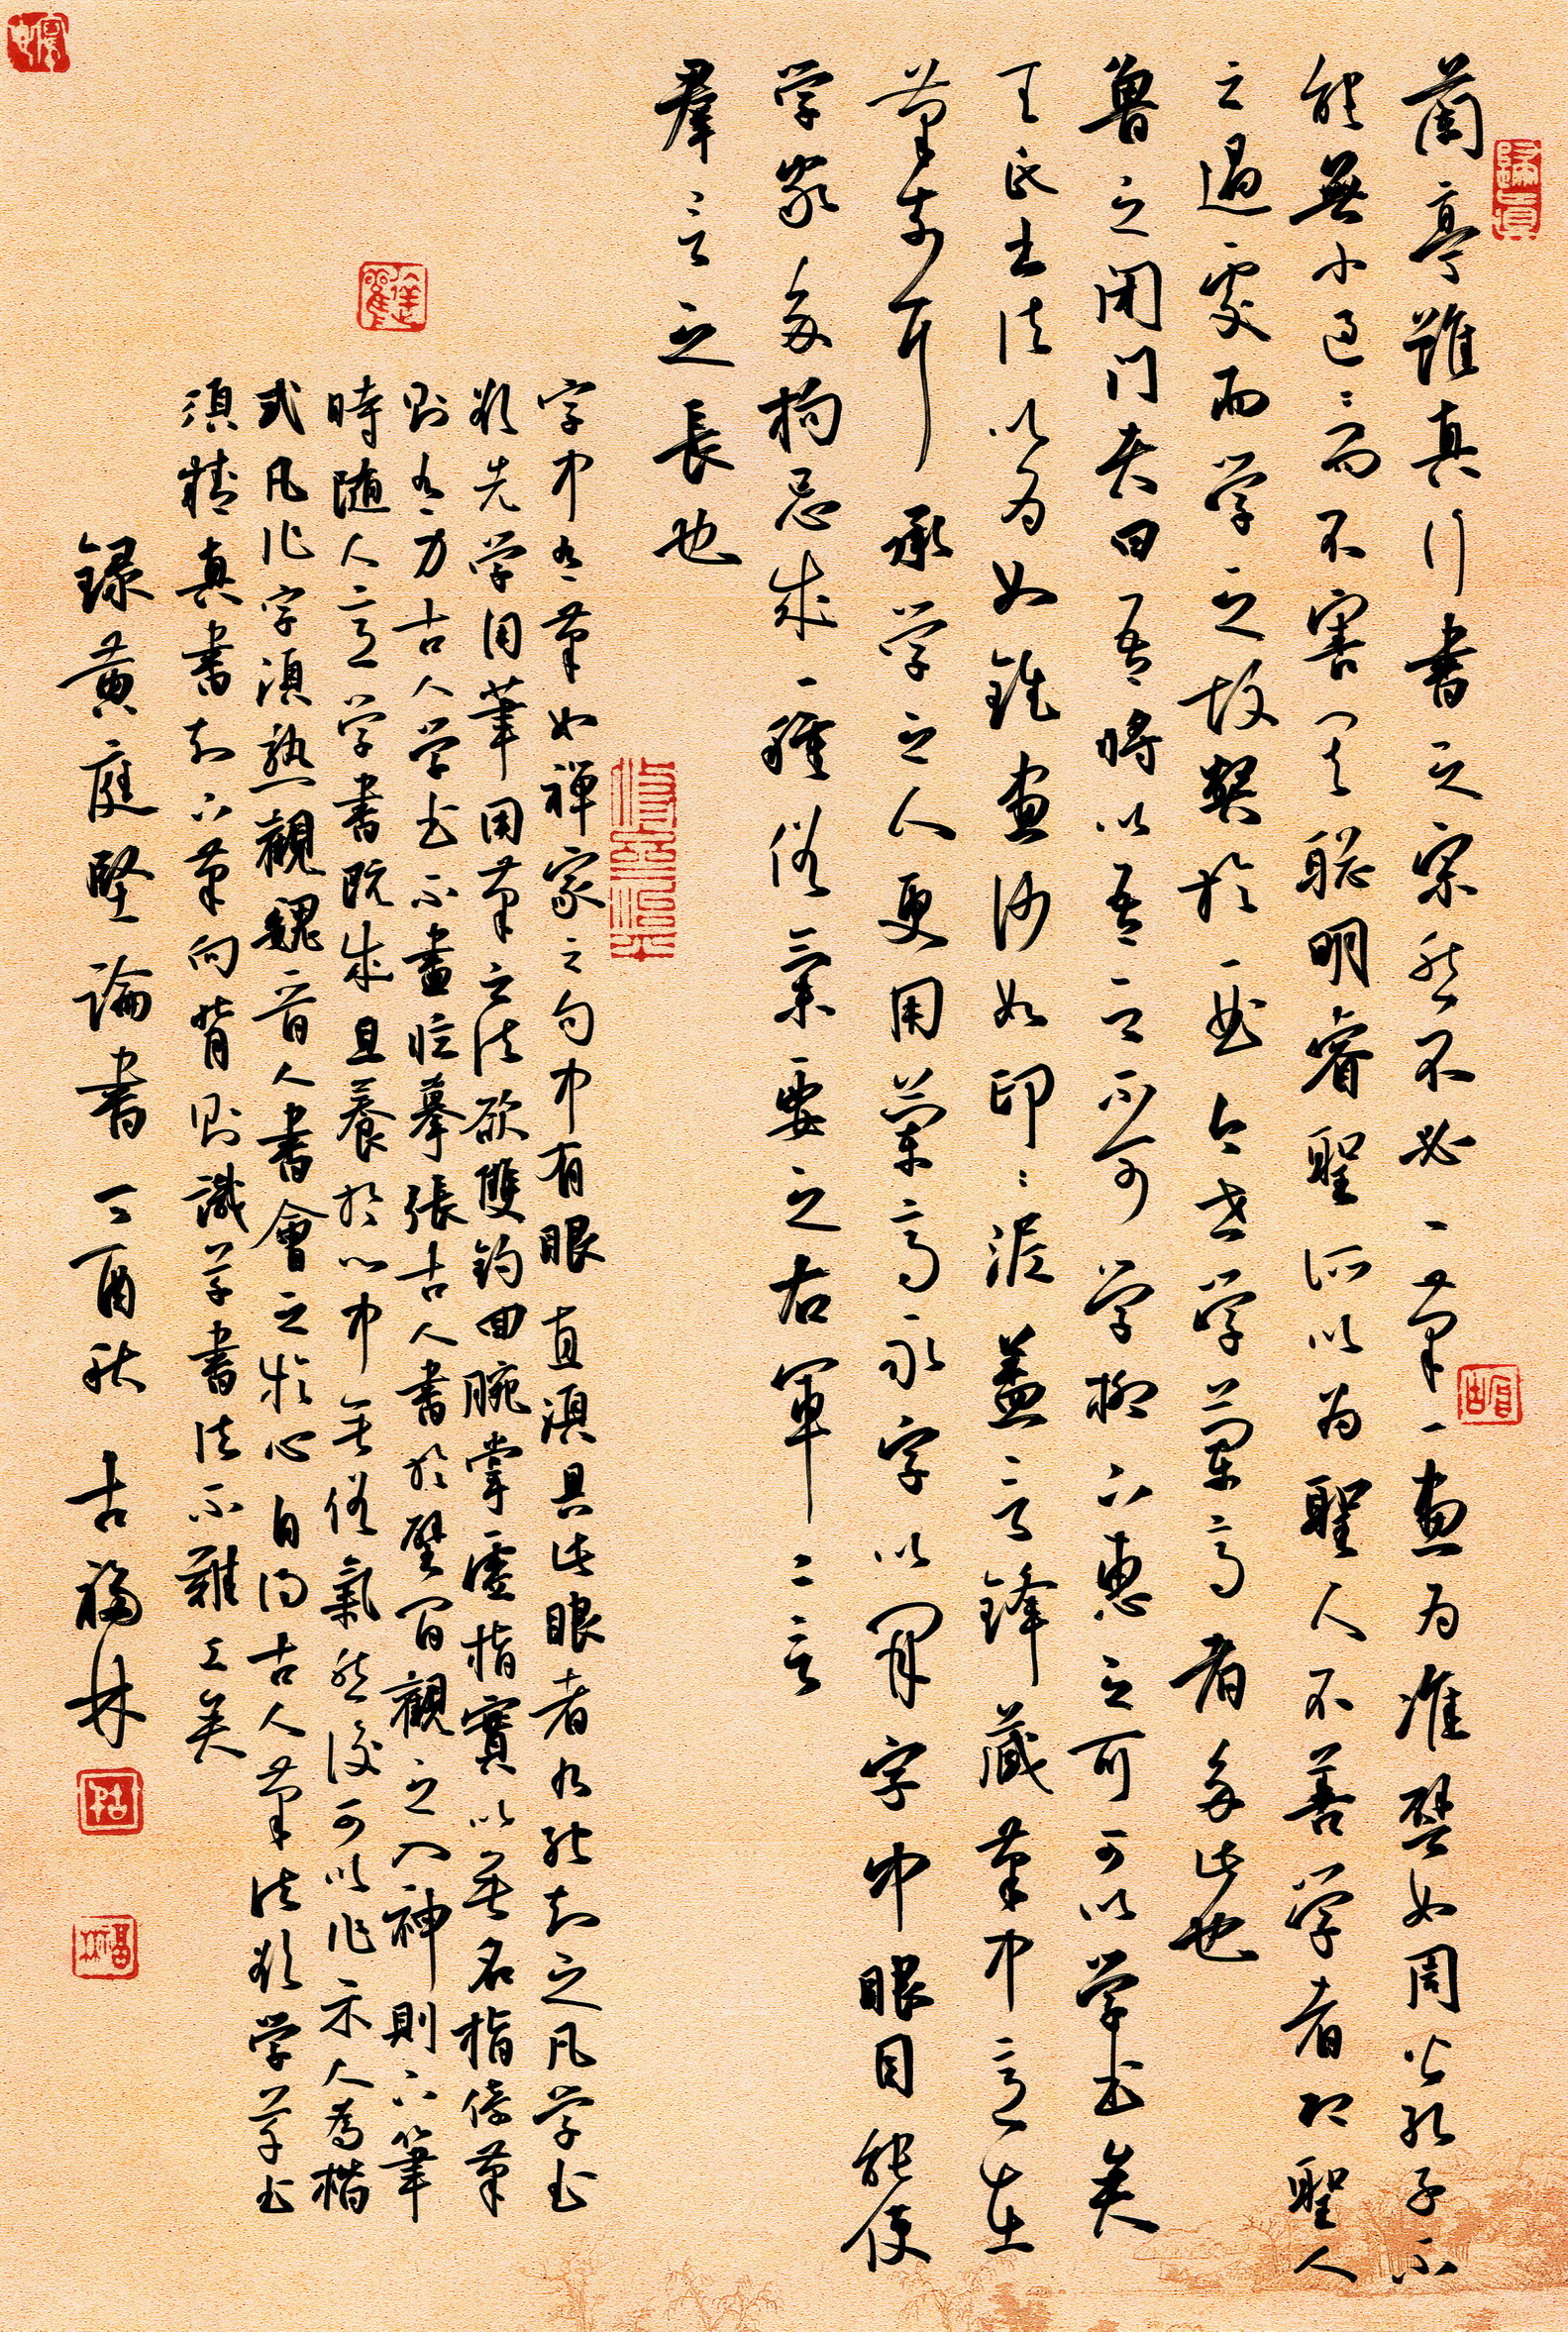 蘭亭雖真行書之宗然不必一筆一畫为准譬如周公孔子不
能無小過過而不害其聡明睿聖所以为聖人不善学者即聖人
之過處而学之故弊於一曲今世学蘭亭者多此也
魯之闭门者曰吾將以吾之不可学柳下惠之可可以学书矣
王氏书法以为如錐画沙如印印泥蓋言鋒藏筆中意在
筆前耳承学之人更用蘭亭永字以開字中眼目能使
学家多拘忌成一種俗氣要之右軍二言
羣言之長也
字中有筆如禅家之句中有眼直須具此眼者乃能知之凡学书
欲先学用筆用筆之法欲雙鈎回腕掌虛指實以無名指倚筆
則有力古人学书不盡臨摹張古人書於壁間觀之入神則下筆
時随人意学書既成且養於心中無俗氣然後可以作示人為楷
式凡作字須熟觀魏晋人書會之於心自得古人筆法欲学草书
須精真書知下筆向背則識草書法不難工矣
録黄庭堅論書 丁酉秋 古福林